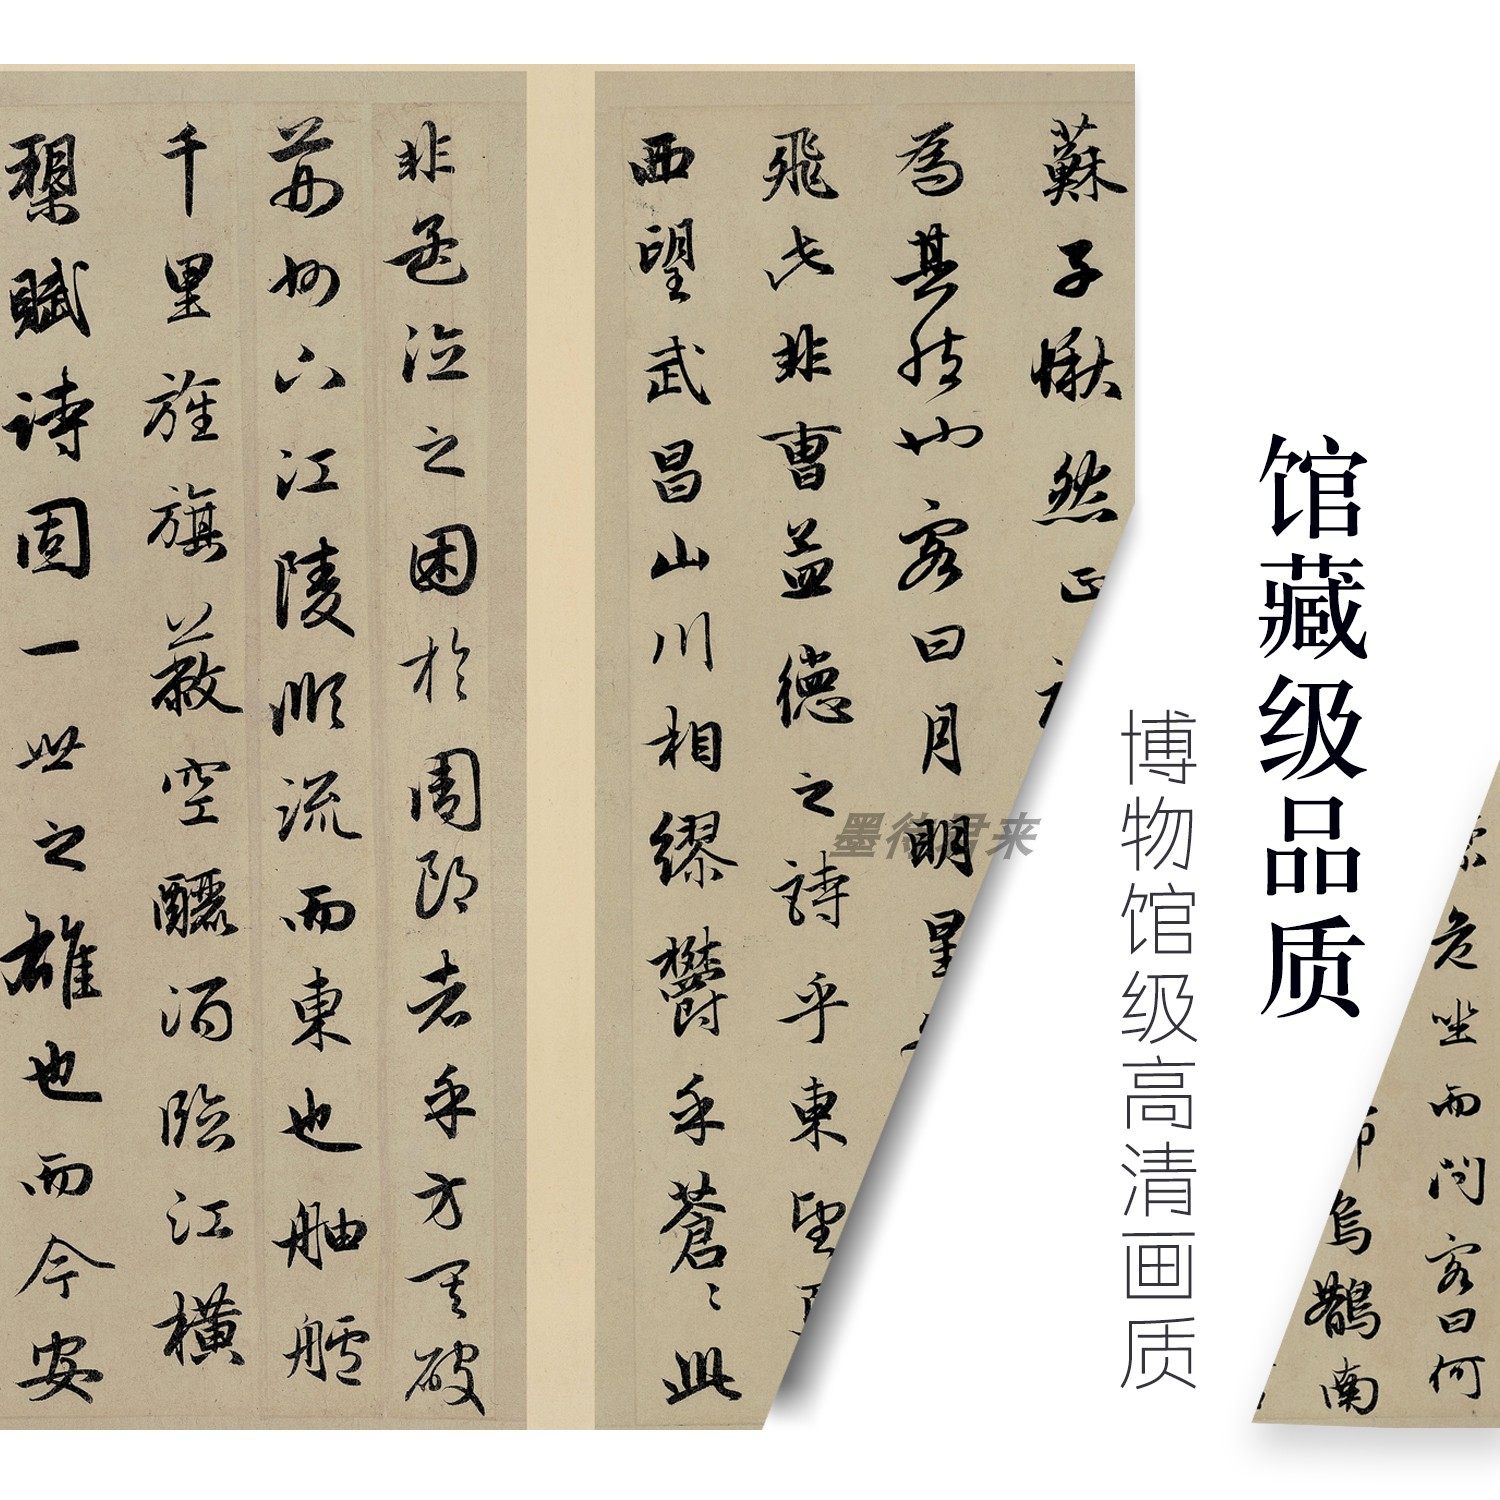 危坐而問客曰何
烏鵲南
馆藏级品质
博物馆级高清画质
蘇子愀然正
為其然也客曰月明星
飛此非曹孟德之詩乎東望
西望武昌山川相繆鬱乎蒼〻此
非孟德之困於周郎者乎方其破
荊州下江陵順流而東也舳艫
千里旌旗蔽空釃酒臨江橫
槊賦詩固一世之雄也而今安
墨待君来